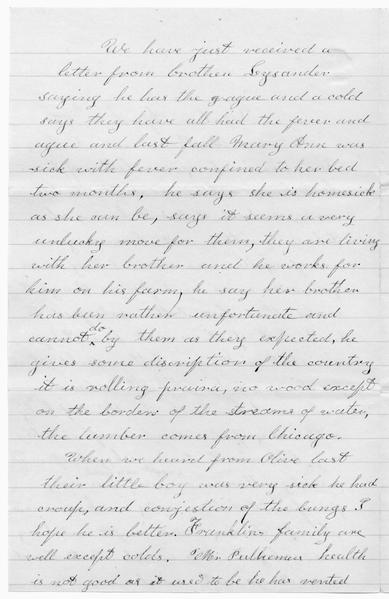 We have just received a
letter from brother Lysander
saying he has the ague and a cold
says they have all had the fever and
ague and last fall Mary Ann was
sick with fever confined to her bed
two months, he says she is homesick
as she can be, says it seems a very
unlucky move for them, they are living
with her brother and he works for
him on his farm, he say her brother
has bun rather unfortunate and
cannot do by them as they expected, he
gives some discription of the country
it is rolling praira, no wood except
on the border of the streams of water,
the lumber comes from Chicago.
When we heard from Olive last
their little boy was very sick he had
croup, and congestion of the lungs I
hope he is better. Franklins family are
well except colds. Mr health
is not good as it used to be he has rented